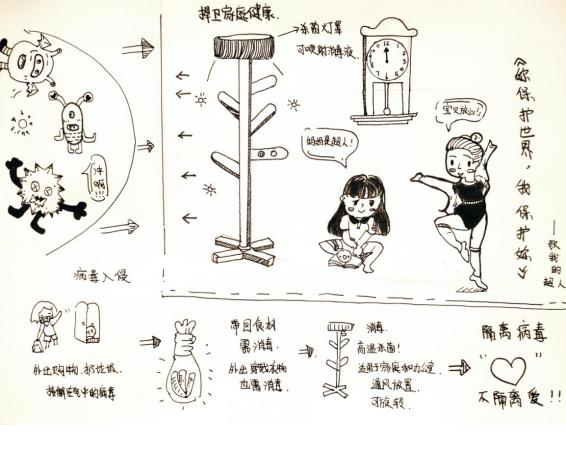 捍卫家庭健康.
杀菌灯罩
可喷射消毒液.
妈妈是超人!
宝贝放心!
《你保护世界,我保护你》
——致我的超人
冲啊!!!
病毒入侵
外出购物、扔垃圾.
接触空气中的病毒
带回食材
需消毒.
外出穿戴衣物
也需消毒.
消毒.
高温杀菌!
适用于家庭和办公室.
通风放置.
可旋转.
隔离病毒
不隔离爱!!